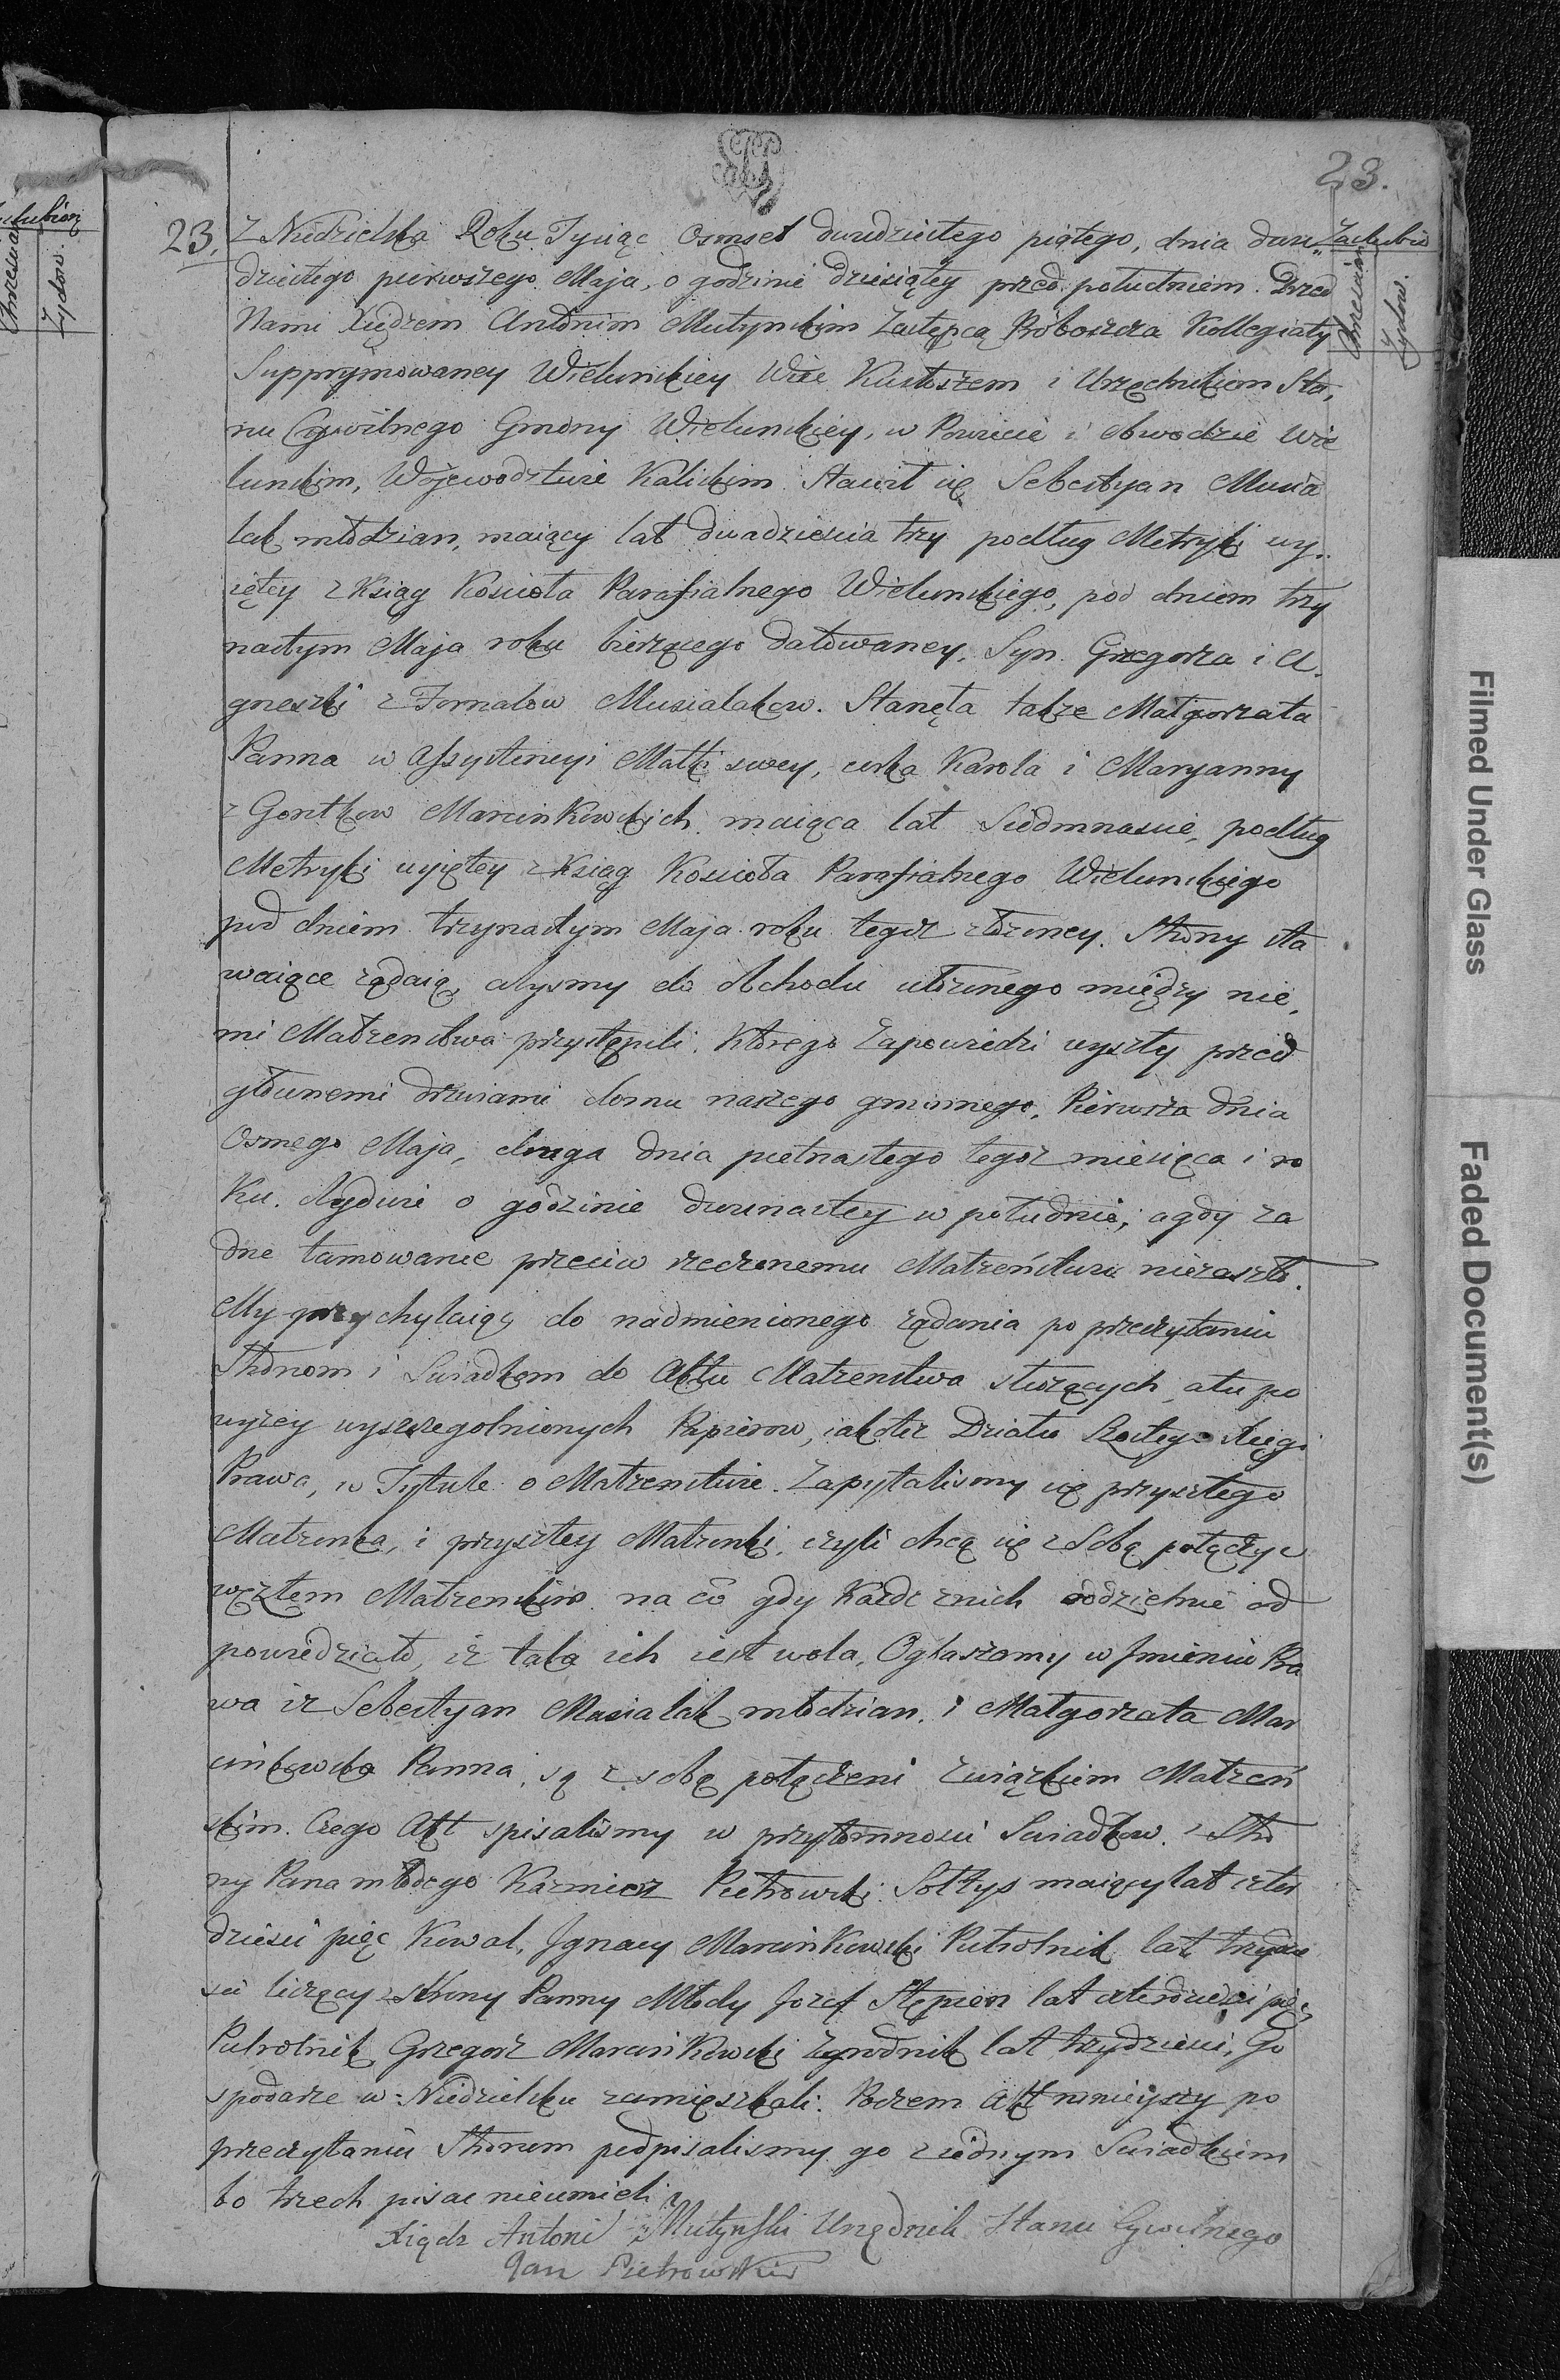 23.
23.
Zaślubio
Chrześcian
Żydow.
Z Niedzielska Roku Tysiąc Osmset dwudziestego piątego, dnia dwu„
dziestego pierwszego Maja, o godzinie dziesiątey przed południem. Przed
Nami Xiędzem Antonim Mutynskim Zastępcą Proboszcza Kollegiaty
Supprymowaney Wielunskiey Wice Kustoszem i Urzędnikiem Sta,
nu Cywilnego Gminy Wielunskiey, w Powiecie i Obwodzie Wie
lunskim, Wojewodztwie Kaliskim Stawił się Sebestyan Musia
lak młodzian, maiący lat dwadziescia trzy podług Metryki wy„
iętey z Xsiąg Kosciola Parafialnego Wielunskiego, pod dniem trzy
nastym Maja roku bierzącego datowaney, Syn Grzegorza i A,
gneszki z Fornalow Musialakow. Stanęła także Małgorzata
Panna w Assystencyi Matki swey, corka Karola i Maryanny
z Gontkow Marcinkowskich maiąca lat Siedmnascie, podług
Metryki wyiętey z Xsiąg Kosciola Parafialnego Wielunskiego
pod dniem trzynastym Maja roku tegoż złożoney. Strony sta
waiące żądaią, abysmy do obchodu ułożonego między nie,
mi Małżenstwa przystąpili, ktorego Zapowiedzi wyszły przed
głownemi drzwiami domu naszego gminnego, Pierwsza dnia
Osmego Maja, druga dnia pietnastego tegoż miesiąca i ro
ku. Obydwie o godzinie dwunastey w południe; a gdy ża
dne tamowanie przeciw rzeczonemu Małżeństwu niezaszło.
My przychylaiąc do nadmienionego żądania po przeczytaniu
Stronom i Swiadkom do Aktu Małżenstwa służących, a tu po
wyżey wyszczegolnionych Papierow, iakoteż Działu Szostego Xięgi
Prawa, w Tytule o Małżenstwie. Zapytalismy się przyszłego
Małżonka, i przyszłey Małżonki, czyli chcą się z Sobą połączyc
węzłem Małżenskim na co gdy każde znich oddzielnie od
powiedziało, iż taka ich iest wola, Ogłaszamy w Jmieniu Pra
wa iż Sebestyan Musialak młodzian, i Małgorzata Mar
cinkowska Panna, są z sobą połączeni Związkiem Małżeń
skim. Czego Akt spisalismy w przytomnosci Swiadkow. z Stro
ny Pana młodego Kazmierz Pietrowski Sołtys maiący lat czter
dziesci pięc Kowal, Jgnacy Marcinkowski Pułrolnik lat trzydzie
sci liczący z Strony Panny Młody Jozef Stępien lat czterdziesci pięc
Pułrolnik Grzegorz Marcinkowski Zagrodnik lat trzydziesci, Go
spodarze w Niedzielsku zamięszkali. Poczem Akt ninieyszy po
przeczytaniu Stronom podpisalismy go z iednym Swiadkiem
bo trzech pisac nieumieli
Xiądz Antoni Mutynski Urzędnik Stanu Cywilnego
Jan Pietrowski
Filmed Under Glass
Faded Document(s)